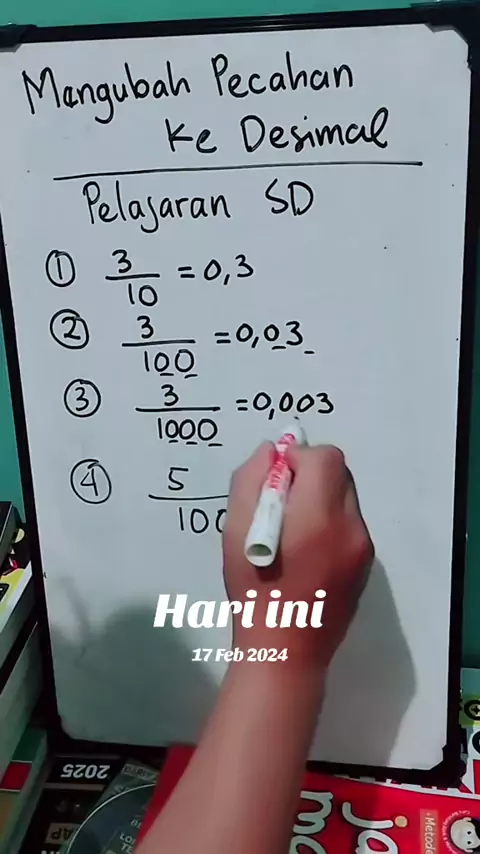 Mengubah Pecahan
Ke Desimal
Pelajaran SD
① 3/10 = 0,3
② 3/100 = 0,03
③ 3/1000 = 0,003
④ 5/100
Hari ini
17 Feb 2024
2025
ja
Metode